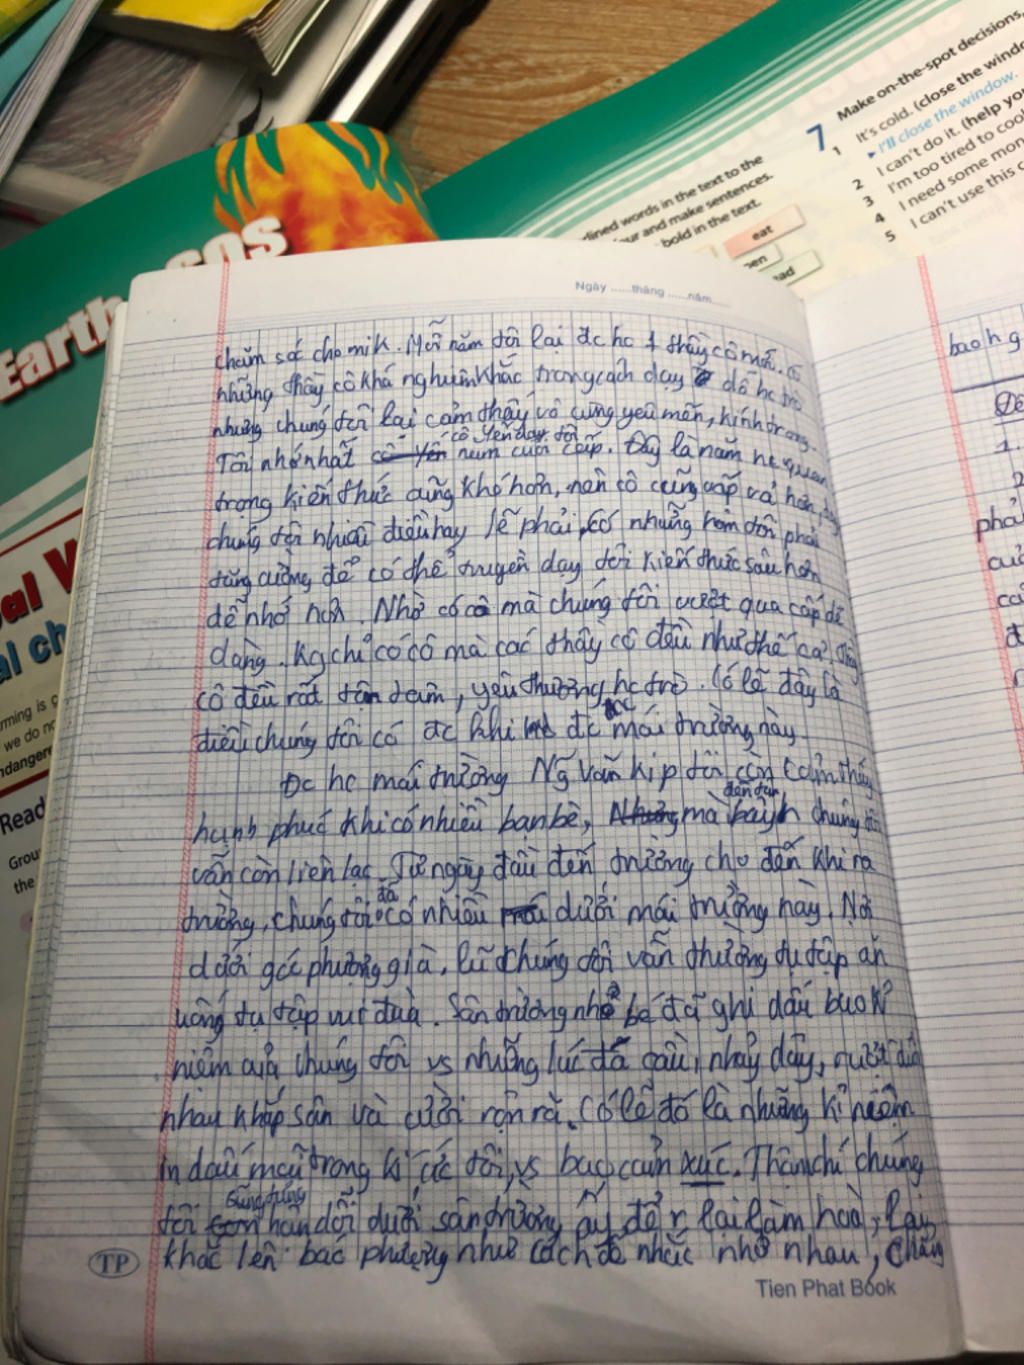 7 Make on-the-spot decisions,
1 It's cold. (close the windo
▸ I'll close the window.
2 I can't do it. (help you
3 I'm too tired to coo
4 I need some mon
5 I can't use this c
lined words in the text to the
ur and make sentences.
bold in the text.
eat
pen
ad
Earth SOS
al ch
rming is
we do no
ndangere
Read
Grou
the
Ngày ......tháng ......năm......
chăm sóc cho mik. Mỗi năm tôi lại đc hc 1 thầy cô mới.
những thầy cô khá nghiêm khắc trong cách dạy để hc trò
nhưng chúng tôi lại cảm thấy vô cùng yêu mến, kính trọng.
Tôi nhớ nhất cô Yến cô Yến dạy tôi năm cuối cấp. Đây là năm hc quan
trọng kiến thức cũng khó hơn, nên cô cũng vấp vả hơn,
chúng tôi nhiều điều hay lẽ phải, có những hôm tôi phải
tăng cường để có thể truyền dạy tới kiến thức sâu hơn
dễ nhớ hơn. Nhờ có cô mà chúng tôi vượt qua cấp dễ
dàng. Kg chỉ có cô mà các thầy cô đều như thế cả.
cô đều rất tận tâm, yêu thương hc trò. Có lẽ đây là
điều chúng tôi có đc khi đc học mái trường này.
Đc hc mái trường Ng Văn kịp tôi còn cảm thấy
hạnh phúc khi có nhiều bạn bè, Nhưng mà đến tận bây h chúng tôi
vẫn còn liên lạc. Từ ngày đầu đến trường cho đến khi ra
trường, chúng tôi đã có nhiều dưới mái trường này. Nơi
dưới gốc phượng già, lũ chúng tôi vẫn thường tụ tập ăn
uống tụ tập vui đùa. Sân trường nhỏ bé đã ghi dấu bao kỉ
niệm của chúng tôi vs những lúc đá cầu, nhảy dây, rượt đuổi
nhau khắp sân và cười rộn rã. Có lẽ đó là những kỉ niệm
in dấu mãi trong kí ức tôi, vs bao cảm xúc. Thậm chí chúng
tôi cũng từng hờn dỗi dưới sân trường ấy để r lại làm hoà, lại
khắc lên bác phượng như cách để nhắc nhở nhau, chẳng
TP
Tien Phat Book
bao h g
1.
2
phải